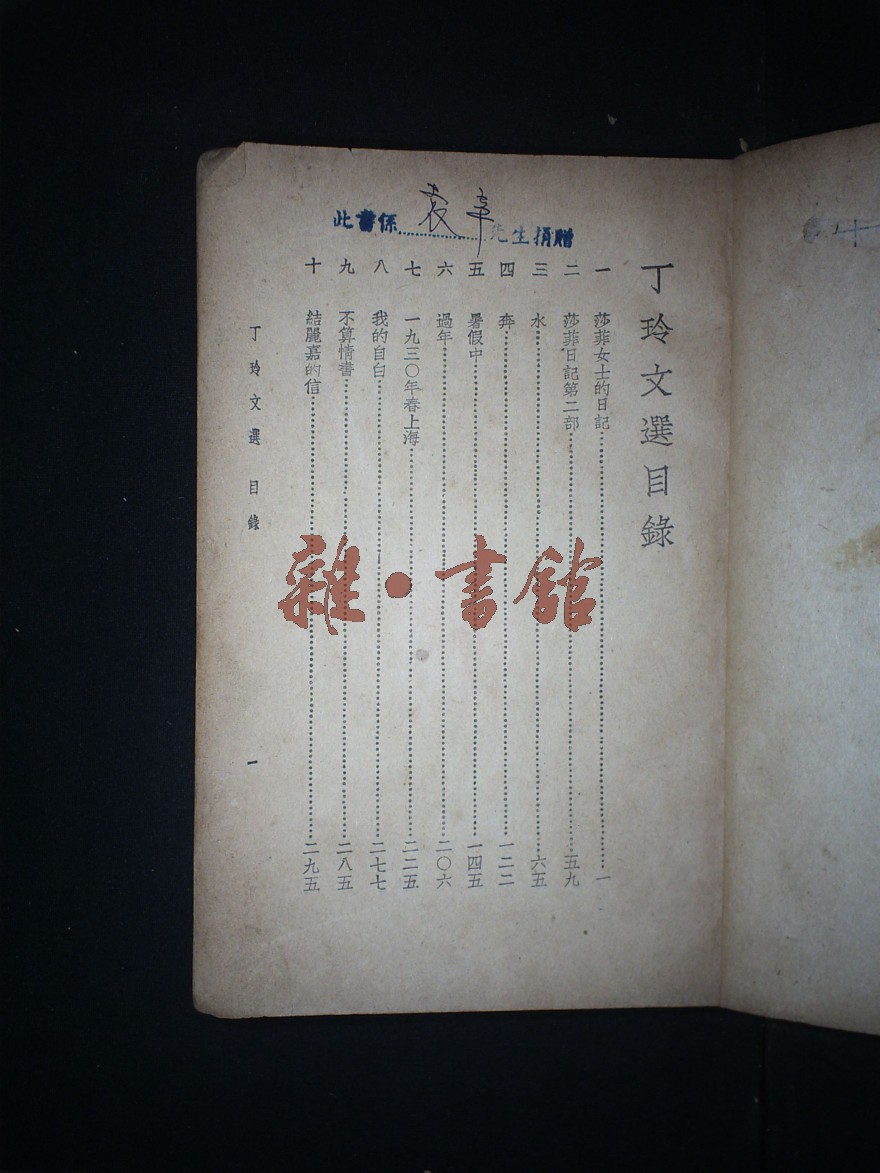 此書係……先生捐贈
丁玲文選目錄
一 莎菲女士的日記……一
二 莎菲日記第二部……五九
三 水……六五
四 奔……一二二
五 暑假中……一四五
六 過年……二〇六
七 一九三〇年春上海……二二五
八 我的自白……二七七
九 不算情書……二八五
十 結麗嘉的信……二九五
丁玲文選 目錄
一
雜·書館